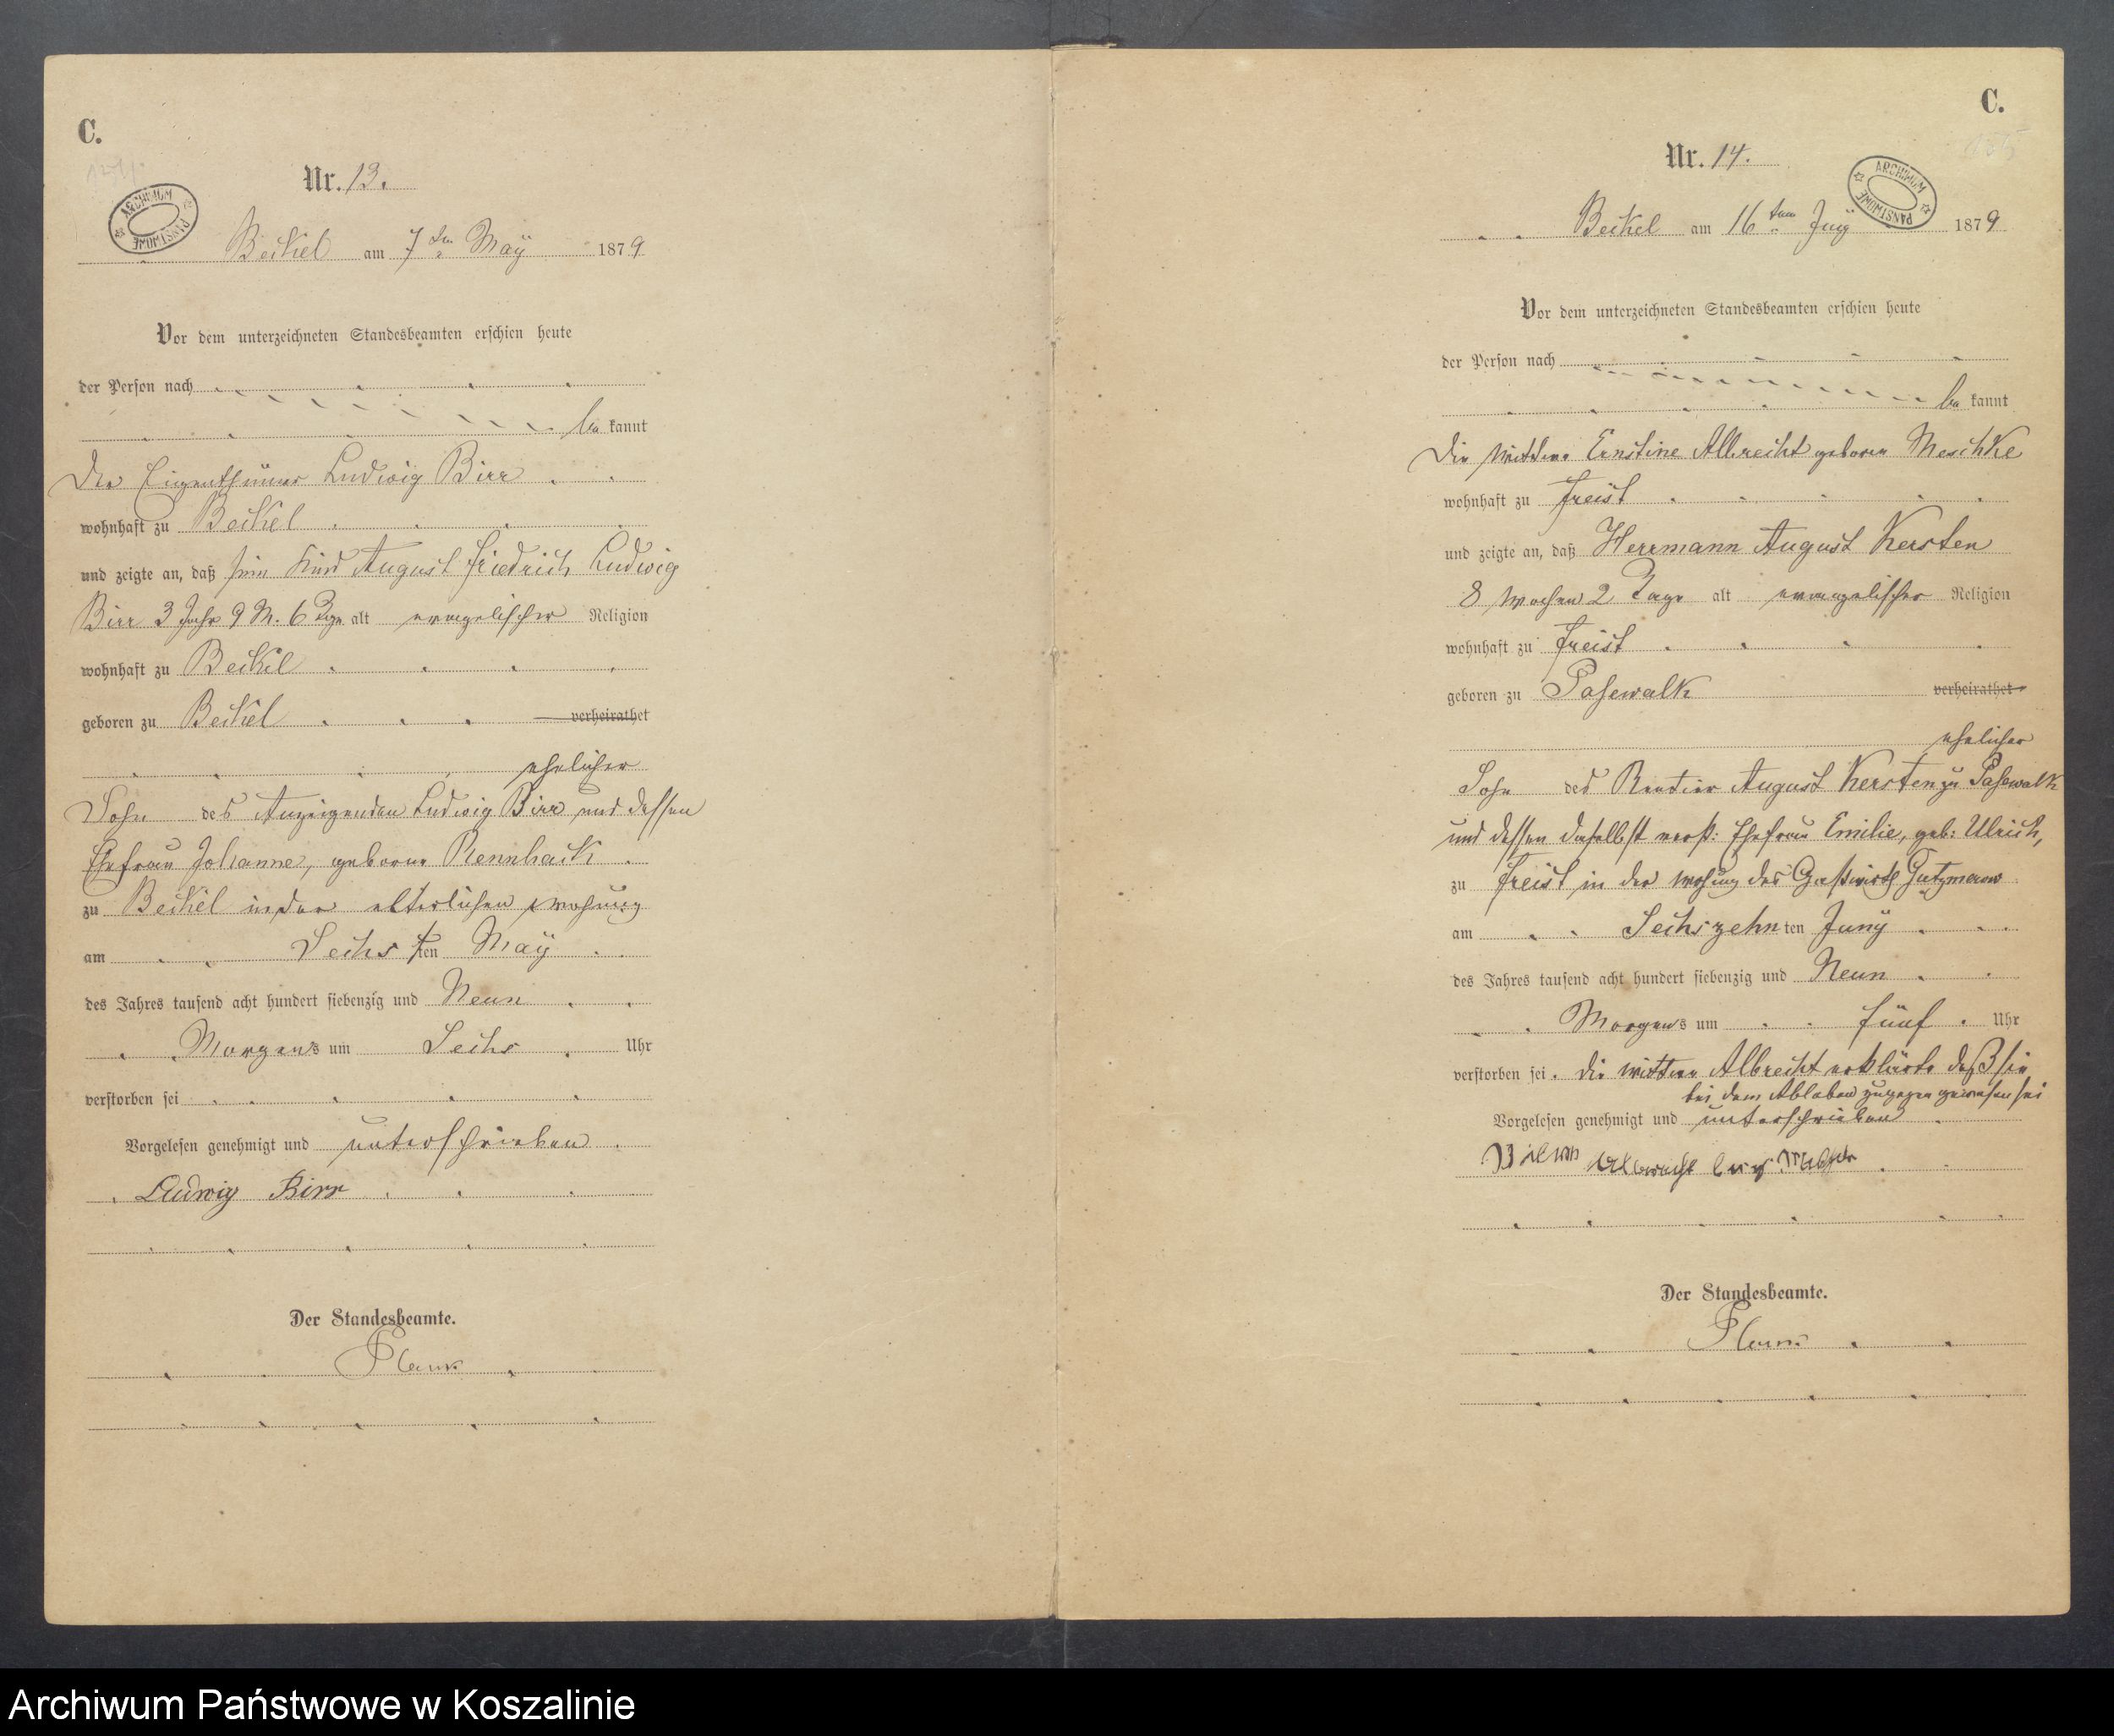 C.
Nr. 13.
ARCHIWUM PAŃSTWOWE
Beckel am 7ten Maÿ 1879
Vor dem unterzeichneten Standesbeamten erschien heute
der Person nach
be kannt
Der Eigenthümer Ludwig Birr
wohnhaft zu Beckel
und zeigte an, daß sein Kind August Friedrich Ludwig
Birr 3 Jahr 9 M. 6 Tage alt evangelischer Religion
wohnhaft zu Beckel
geboren zu Beckel verheirathet
ehelicher
Sohn des Anzeigenden Ludwig Birr und dessen
Ehefrau Johanne, geborne Rennhack
zu Beckel in der elterlichen Wohnung
am Sechsten Maÿ
des Jahres tausend acht hundert siebenzig und Neun
Morgens um Sechs Uhr
verstorben sei
Vorgelesen genehmigt und unterschrieben
Ludwig Birr
Der Standesbeamte.
C.
Nr. 14.
ARCHIWUM PAŃSTWOWE
Beckel am 16ten Junÿ 1879
Vor dem unterzeichneten Standesbeamten erschien heute
der Person nach
be kannt
Die Wittwe Ernstine Albrecht geboren Meschke
wohnhaft zu Freist
und zeigte an, daß Herrmann August Kersten
8 Wochen 2 Tage alt evangelischer Religion
wohnhaft zu Freist
geboren zu Pasewalk verheirathet
ehelicher
Sohn des Rentier August Kersten zu Pasewalk
und dessen daselbst verst: Ehefrau Emilie, geb: Ulrich,
zu Freist in der Wohung des Gastwirth Gutzmerow
am Sechszehnten Junÿ
des Jahres tausend acht hundert siebenzig und Neun
Morgens um fünf Uhr
verstorben sei. Die Wittwe Albrecht erklärte daß sie
bei dem Ableben zugegen gewesen sei
Vorgelesen genehmigt und unterschrieben
Der Standesbeamte.
Archiwum Państwowe w Koszalinie